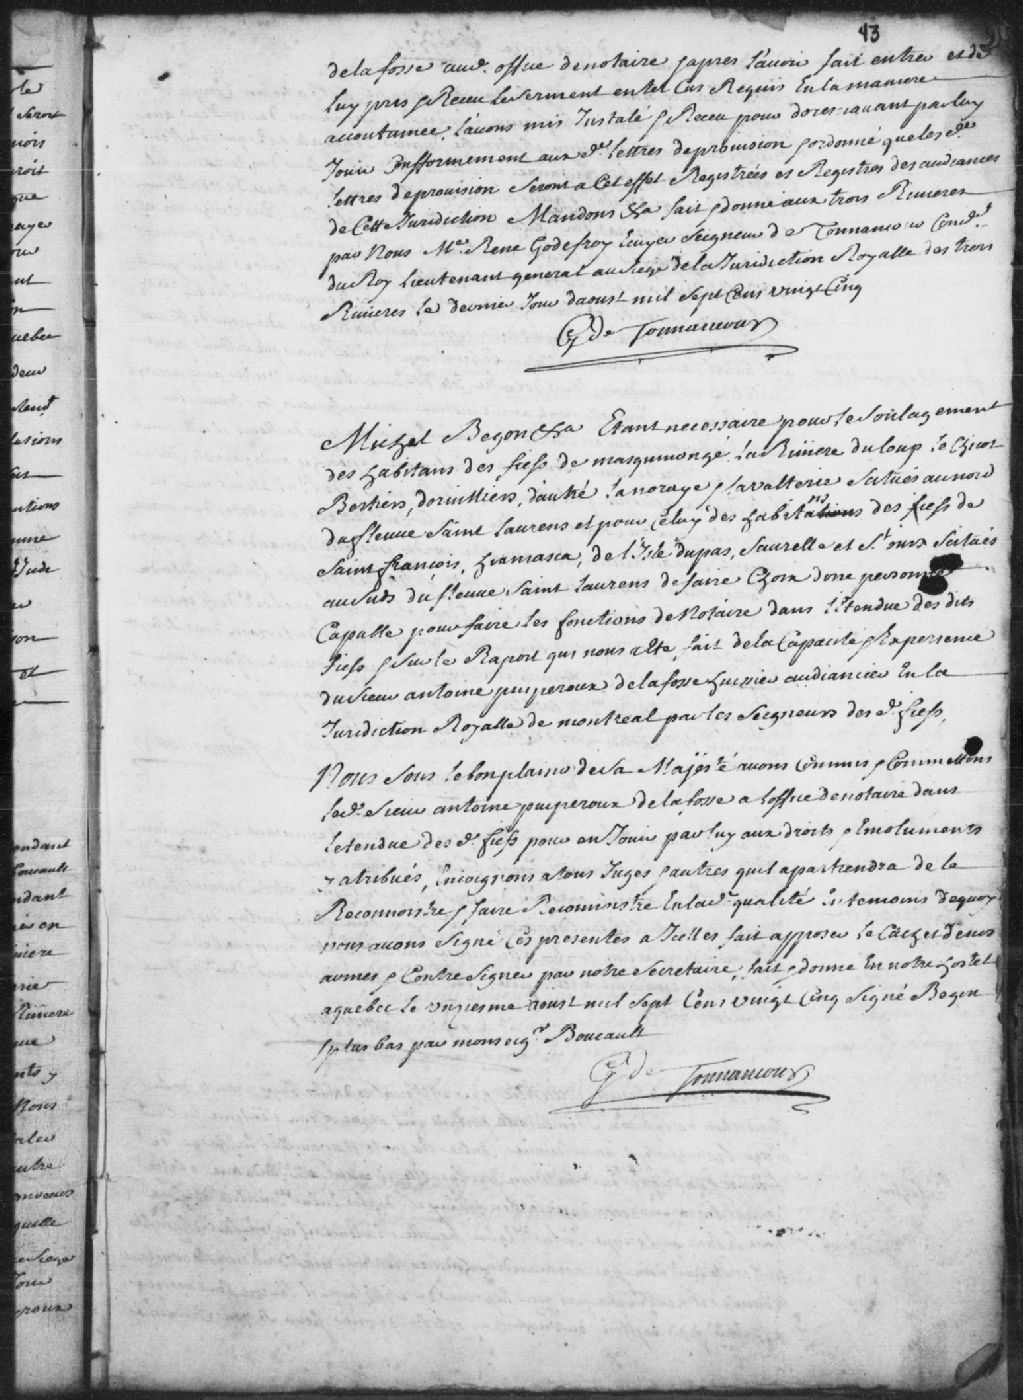 13
delafosse aud. office denotaire & apres Lavoir fait entrer et de
luy pris & Receu Le Serment en tel Cas Requis En la maniere
acoutumée, Lavons mis Instalé & Receu pour doresnavant par luy
Jouir Conformement aux d. lettres deprovision & ordonné que les d.
lettres deprovision Seront a Cet effet Registrées es Registres des audiances
de Cette Juridiction Mandons &a fait & donné aux trois Rivieres
par Nous Me. René Godefroy Ecuyer Seigneur De Tonnancour Con.er
du Roy Lieutenant general au Siege de la Juridiction Royalle des trois
Rivieres le dernier Jour daoust mil Sept Cens vingt Cinq
G De Tonnancour
Michel Begon &a Etant necessaire pour le Soulagement
des habitans des fiefs de masquinongé, La Riviere du loup le Chicot
Bertier, dorvilliers, dautré Lanoraye & Lavalterie Scitués au nord
du fleuve Saint Laurens et pour Celuy des habitans des fiefs de
Saint françois, yamasca, de L'Isle dupas, Saurelle et St. ours Scitués
au Sud du fleuve Saint Laurens de faire Choix dune personne
Capable pour faire les fonctions de Notaire dans Letendue des dits
fiefs & Sur le Raport qui nous a Eté fait de la Capacité & Experience
du Sieur antoine puyperoux de lafosse huissier audiancier En la
Juridiction Royalle de montreal par les Seigneurs des d. fiefs,
Nous Sous le bon plaisir de Sa Majesté avons Commis & Commettons
led. Sieur antoine puyperoux de la fosse a loffice denotaire dans
letendue des d. fiefs pour en Jouir par luy aux droits & Emoluments
y atribués, Enjoignons a tous Juges & autres quil apartiendra de le
Reconnoistre & faire Reconnoistre En lad. qualité En temoins dequoy
nous avons Signé Ces presentes a Icelles fait apposer le Cachet denos
armes & Contre Signer par notre Secretaire, fait & donné En notre hostel
a quebec le unziesme aoust mil Sept Cens vingt Cinq Signé Begon
& plus bas par monseigr. Boucault
G De Tonnancour